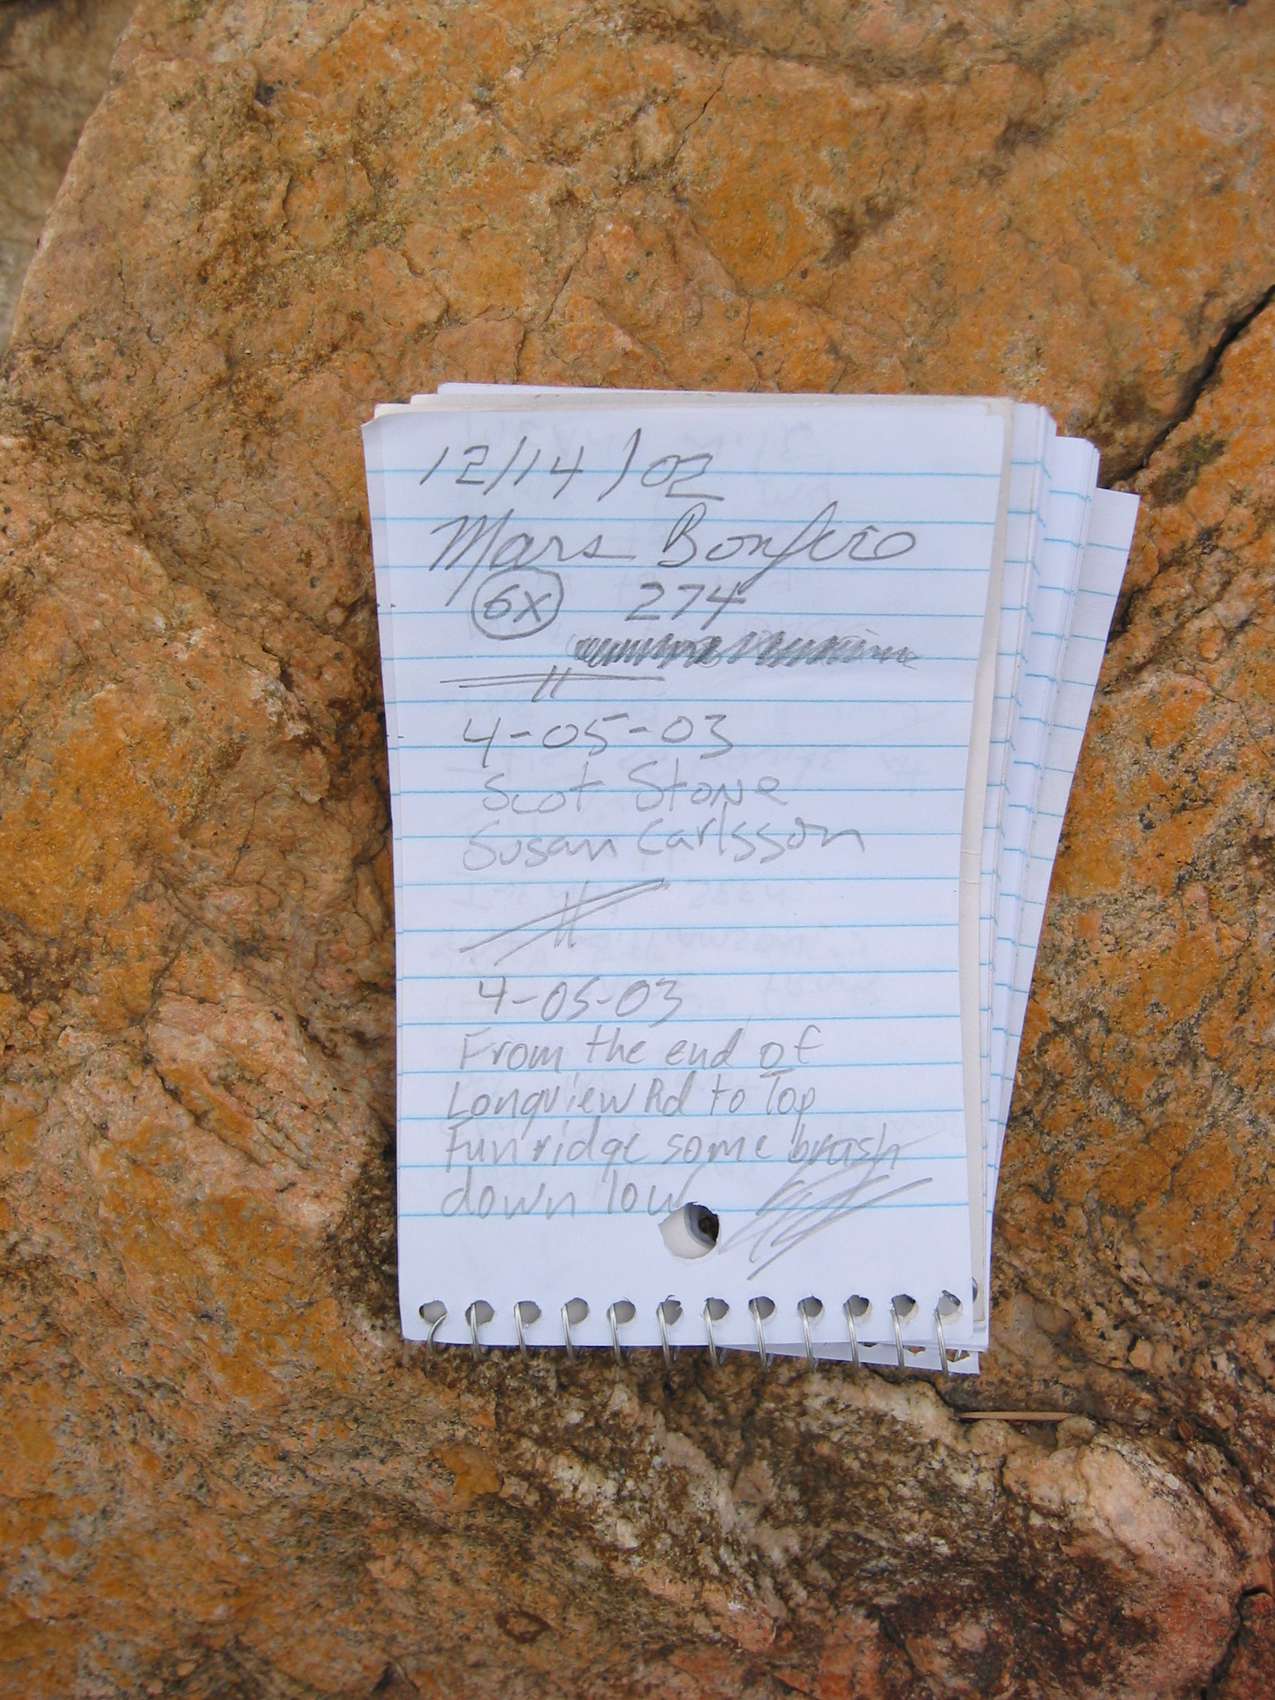 12/14/02
Mars Bonfire
6x 274
4-05-03
Scot Stone
Susan Carlsson
4-05-03
From the end of
Longview Rd to Top
Fun ridge some brush
down low